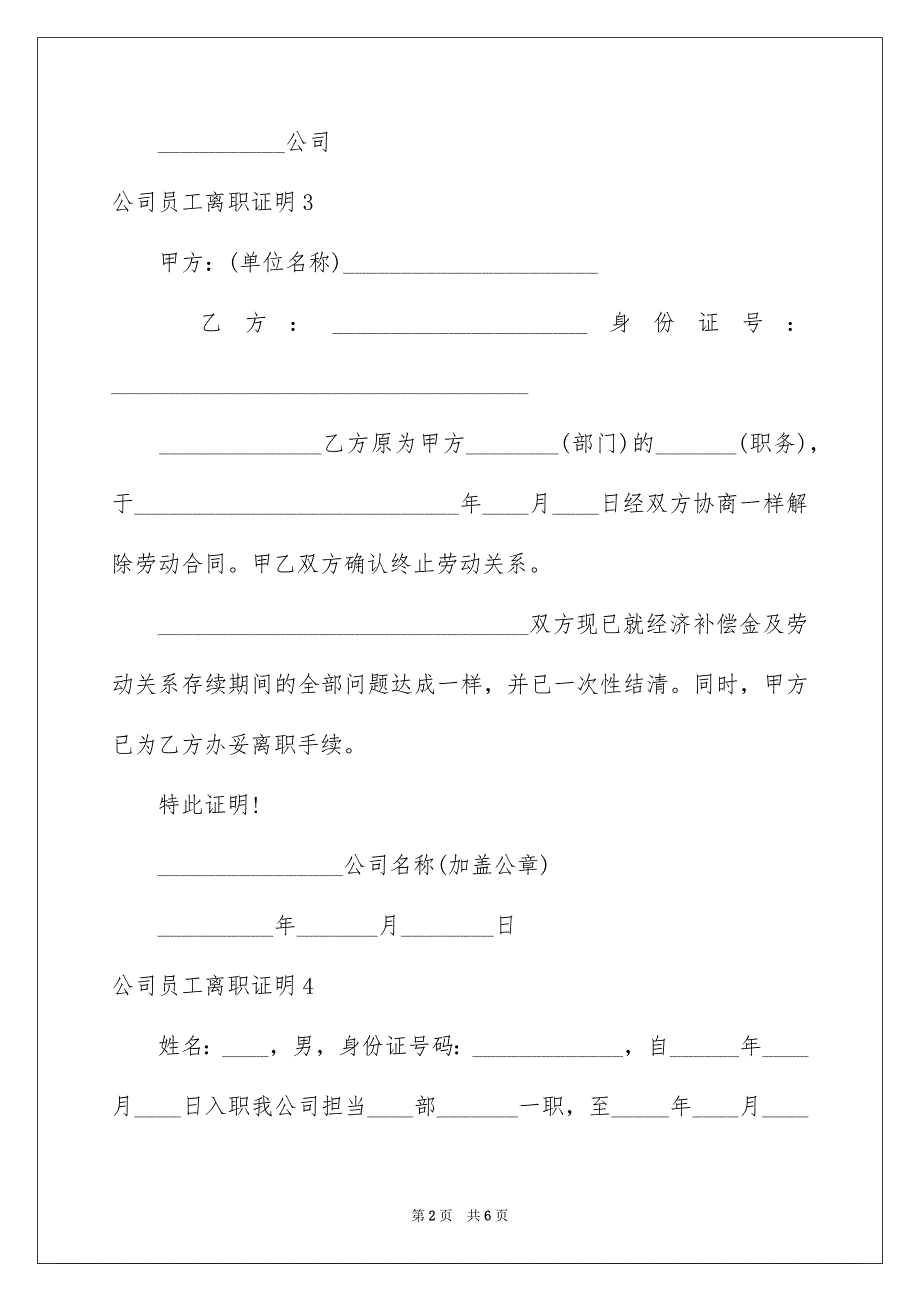 ___________公司
公司员工离职证明3
甲方：(单位名称)______________________
乙方：______________________身份证号：
____________________________________
______________乙方原为甲方________(部门)的_______(职务)，
于____________________________年____月____日经双方协商一样解
除劳动合同。甲乙双方确认终止劳动关系。
________________________________双方现已就经济补偿金及劳
动关系存续期间的全部问题达成一样，并已一次性结清。同时，甲方
已为乙方办妥离职手续。
特此证明!
________________公司名称(加盖公章)
__________年_______月________日
公司员工离职证明4
姓名：____，男，身份证号码：_____________，自______年____
月____日入职我公司担当____部_______一职，至_____年____月____
第2页 共6页